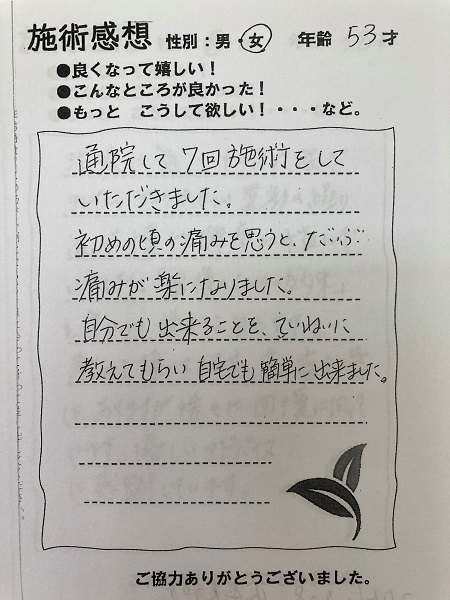 施術感想 性別：男・女 年齢 53才
●良くなって嬉しい！
●こんなところが良かった！
●もっと　こうして欲しい！・・・など。
通院して 7回施術をして
いただきました。
初めの頃の痛みを思うと、だいぶ
痛みが楽になりました。
自分でも出来ることを、ていねいに
教えてもらい 自宅でも簡単に出来ました。
ご協力ありがとうございました。